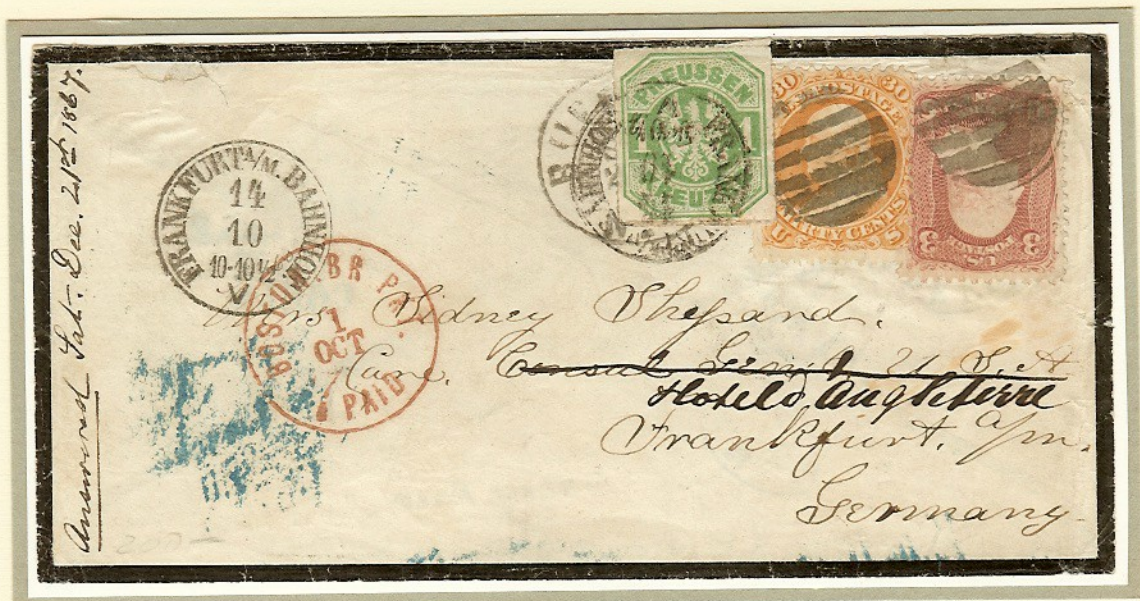 Answered Sat. Dec. 21st 1867.
FRANKFURT A/M. BAHNHOF
14
10
10-10½
BOSTON BR PK
1
OCT
PAID
PREUSSEN
1
KREUZER
30 30
U.S. POSTAGE
THIRTY CENTS
U S
3 3
U.S.
POSTAGE
Mrs Sidney Shepard.
Care. Consul Genl U.S.A
Hotel d'Angleterre
Frankfurt, a/m.
Germany